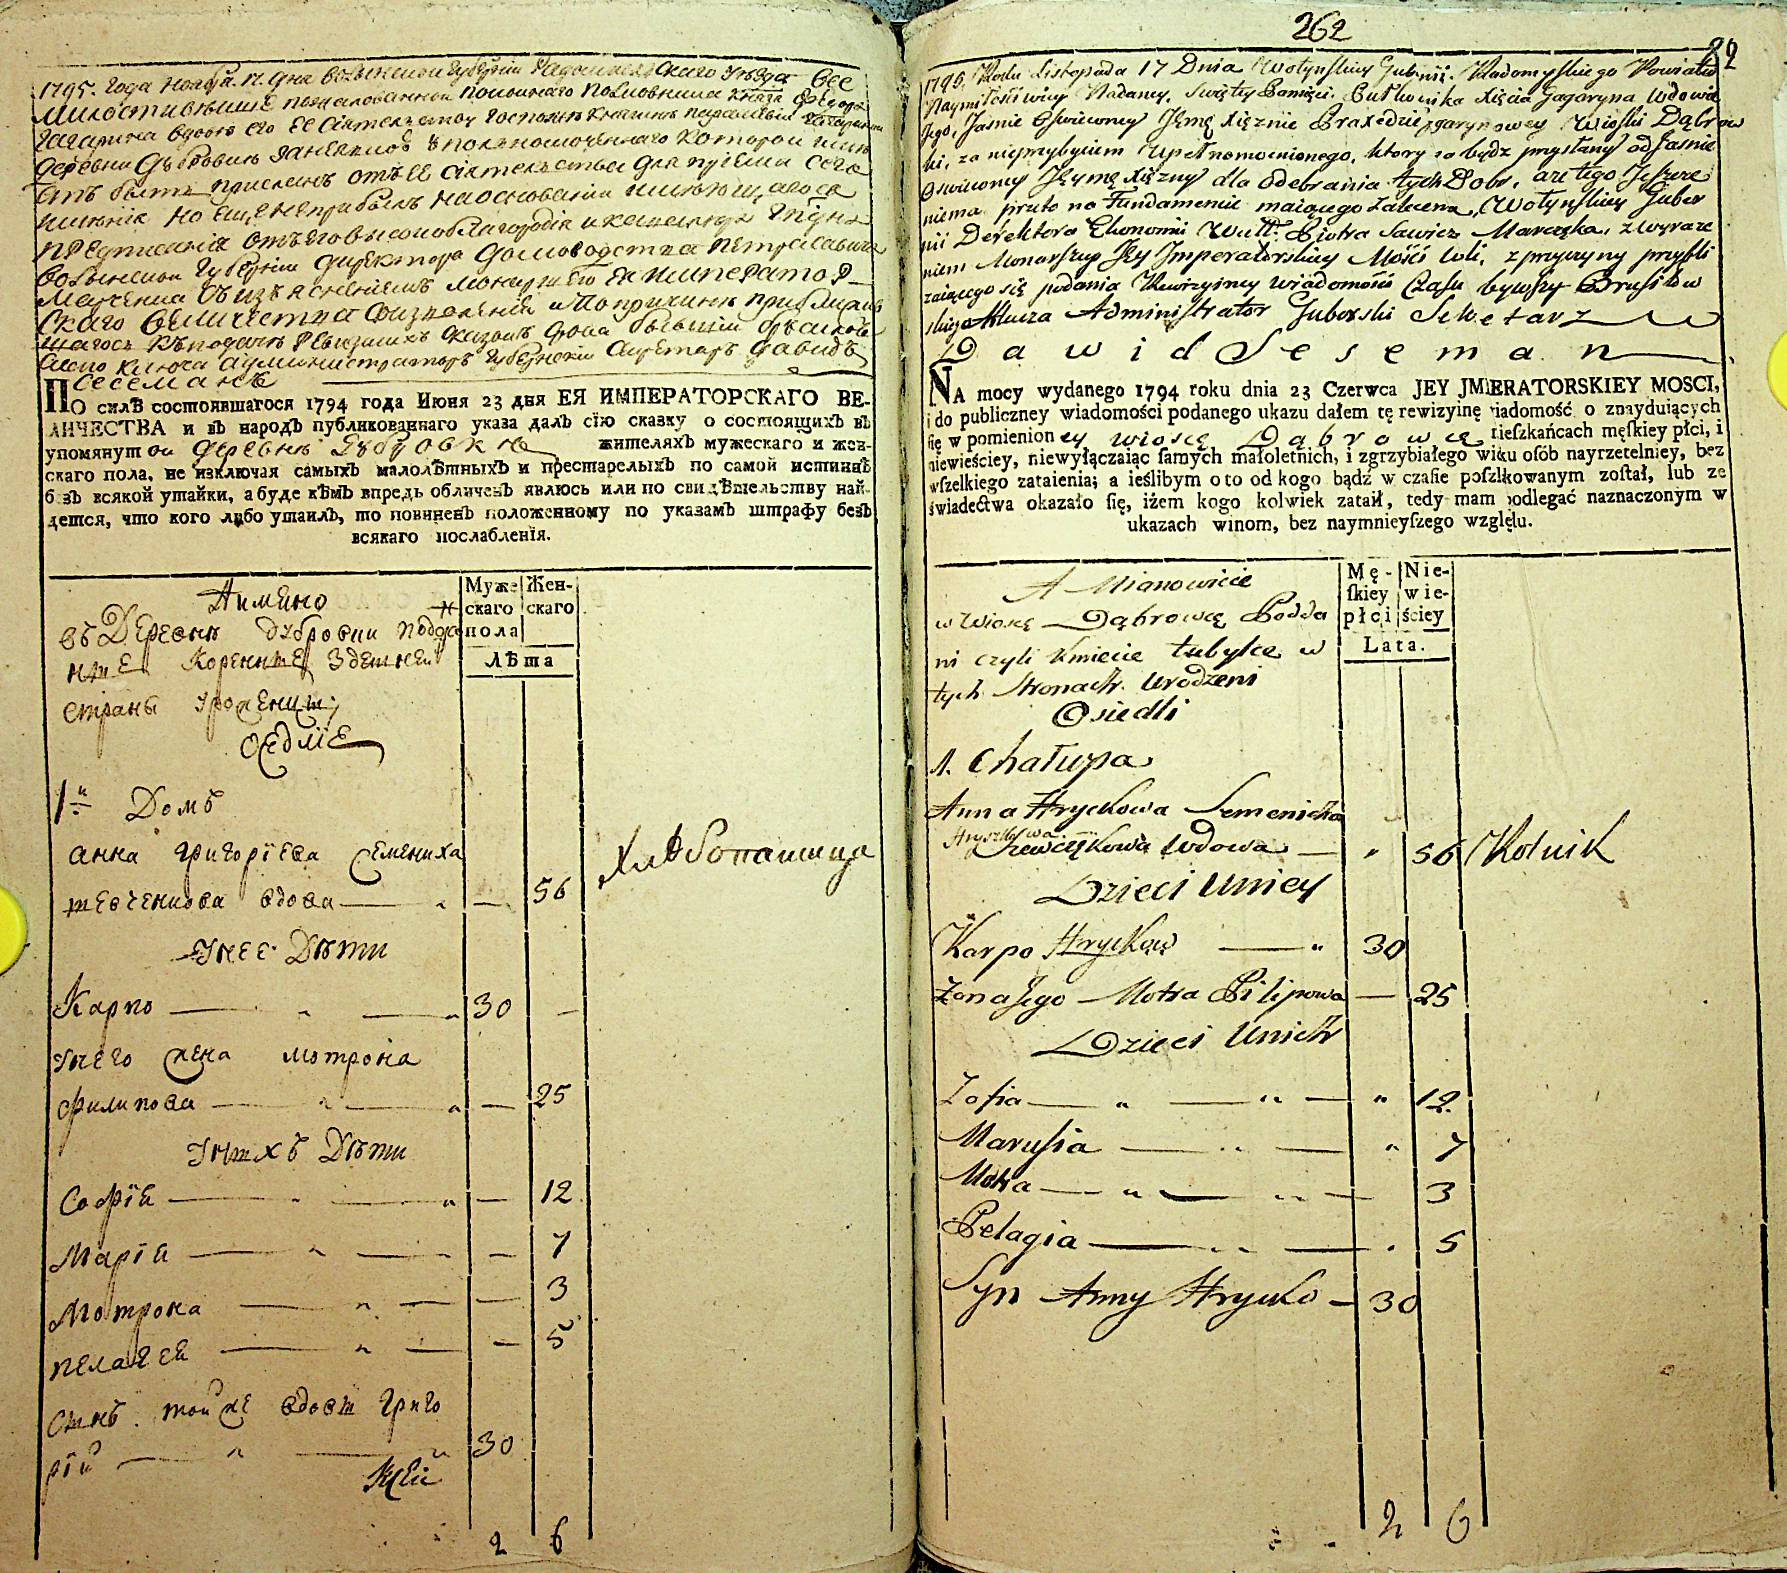 262
22
1795. Года Ноября. 17. Дня Волынской Губернїи Радомысльскаго Уѣзда Все
милостивѣйше пожалованной покойнаго Полковника Князя Ѳедора
Гагарина вдовѣ его Ее Сіятельству Госпожѣ Княгинѣ
деревни Дубровки за неимѣнїемъ уполномоченнаго которой
быть присланъ отъ Ее Сіятельства для прїема сего
имѣнія но еще неприбылъ на основанїи
предписанія отъ его высокоблагородїя
Волынской Губернїи Директора Домоводства Петра Савича
Марченка съ изъясненїемъ Монаршаго Ея Император-
скаго Величества соизволенїя и по причинѣ приближаю
щагося къ подачѣ ревизскихъ сказокъ срока бывшїй Брусилов
скаго ключа администраторъ Губернскїй Секретарь Давидъ
Сесеманъ
ПО силѣ состоявшагося 1794 года Июня 23 дня ЕЯ ИМПЕРАТОРСКАГО ВЕ-
ЛИЧЕСТВА и въ народъ публикованнаго указа далъ сїю сказку о состоящихъ въ
упомянутой деревнѣ Дубровкѣ жителяхъ мужескаго и жен-
скаго пола, не изключая самыхъ малолѣтныхъ и престарелыхъ по самой истиннѣ
безъ всякой утайки, а буде кѣмъ впредь обличенъ явлюсь или по свидѣтельству най-
дется, что кого либо утаилъ, то повиненъ положенному по указамъ штрафу безъ
всякаго послабленїя.
Муже Жен-
скаго скаго
пола
Лѣта
Аимено
въ Деревнѣ Дубровки подда
ные Коренные Здешней
страны уроженцы
оседлїе
1й Домъ
Анна Григорїева Семениха
шевченкова вдова — „ — 56 Хлѣбопашица
У нее Дѣти
Карпо — „ — „ 30 —
У него жена Мотрона
Филипова — „ — „ — 25
У ныхъ Дѣти
Софїя — „ — „ — 12
Марїя — „ — — 7
Мотрона — „ — — 3
Пелагея — „ — — 5
Сынъ той же вдовы Григо
рїй — „ — „ 30
2 6
1795 Roku Listopada 17 Dnia Wołynskiey Gubernii. Radomyslskiego Powiatu
Naymiłościwiey Nadaney. Swiętey Pamięci. Pułkownika Xięcia Gagaryna Wdowie
Jego, Jaśnie Oświeconey Jeymę Xiężnie Praxedzie Wioski Dąbrow
ki, za nieprzybyciem Upełnomocnionego, ktory ma bydz przysłany od Jaśnie
Oświeconey Jeymę Xiężny dla Odebrania tych Dobr, a że tego Jeszcze
niema przeto na Fundamencie maiącego zalecenia, Wołynskiey Guber
nii Derektora Ekonomii Piotra Sawicz Marczęka, z wyraże
niem Monarszey Jey Imperatorskiey Mości Woli, z przyczyny przybli
żaiącego się podania Rewizyiney wiadomości Czasu bywszy Brusiłow
skiego Klucza Administrator Guberski Sekretarz
Dawid Seseman
NA mocy wydanego 1794 roku dnia 23 Czerwca JEY JMPERATORSKIEY MOSCI,
i do publiczney wiadomości podanego ukazu dałem tę rewizyinę wiadomość o znayduiących
ſię w pomienioney wioscę Dąbrowcę mieſzkańcach męſkiey płci, i
niewieściey, niewyłączaiąc ſamych małoletnich, i zgrzybiałego wiku oſób nayrzetelniey, bez
wſzelkiego zataienia; a ieślibym o to od kogo bądź w czaſie poſzlkowanym został, lub ze
świadectwa okazało ſię, iżem kogo kolwiek zataił, tedy mam podlegać naznaczonym w
ukazach winom, bez naymnieyſzego względu.
Mę- Nie-
ſkiey wie-
płci ściey
Lata.
A Mianowicie
w Wioscę Dąbrowcę Podda
ni czyli Kmiecie tubylce w
tych stronach Urodzeni
Osiedli
1. Chałupa
Anna Hryckowa Semenicha
Hryszkowa
Szewczękowa Wdowa — „ 56 Rolnik
Dzieci Uniey
Karpo Hryckow — „ 30
Żona Jego Motra Pilipowa — 25
Dzieci Unich
Zofia — „ — „ — „ 12
Marusia — „ — „ 7
Motra — „ — „ — 3
Pelagia — „ — „ 5
Syn Anny Hrycko — 30
2 6